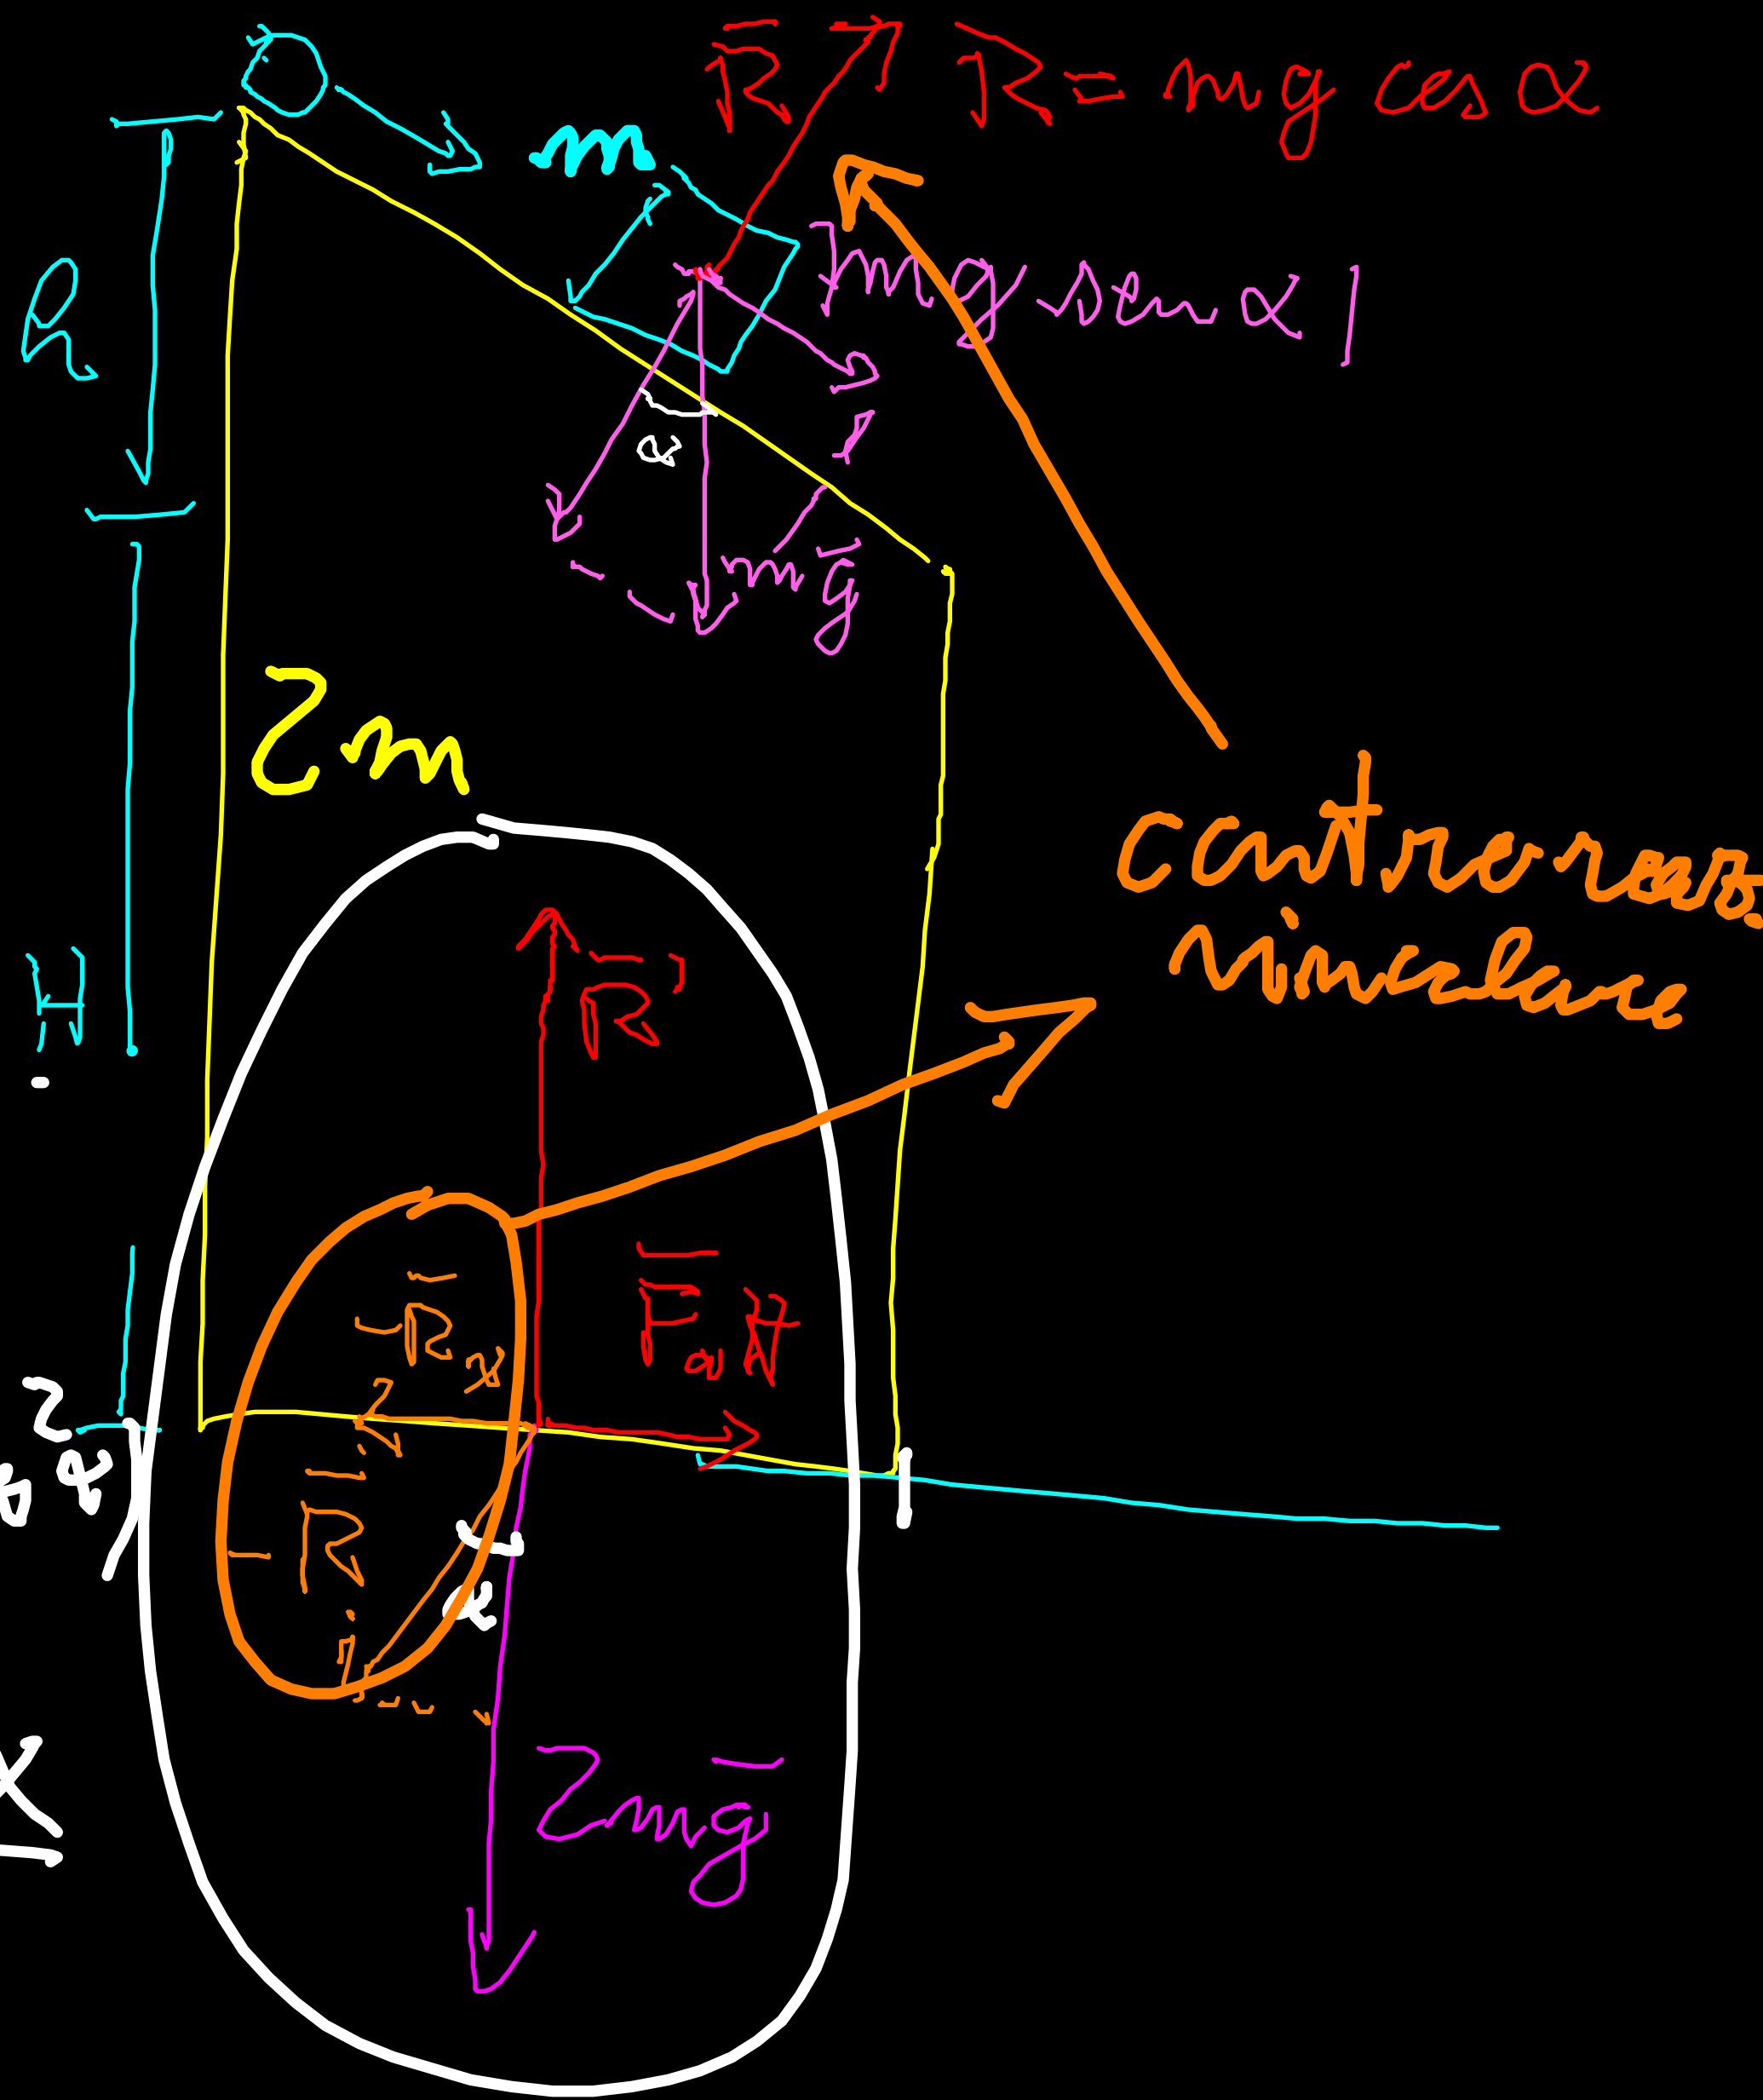 R̄ R = mg cos α
m
h
mg sen α
α
mḡ
2m
controreaz.
vincolare
H
R̄'
F̄att
-R̄x
2
-R̄
α
2mḡ